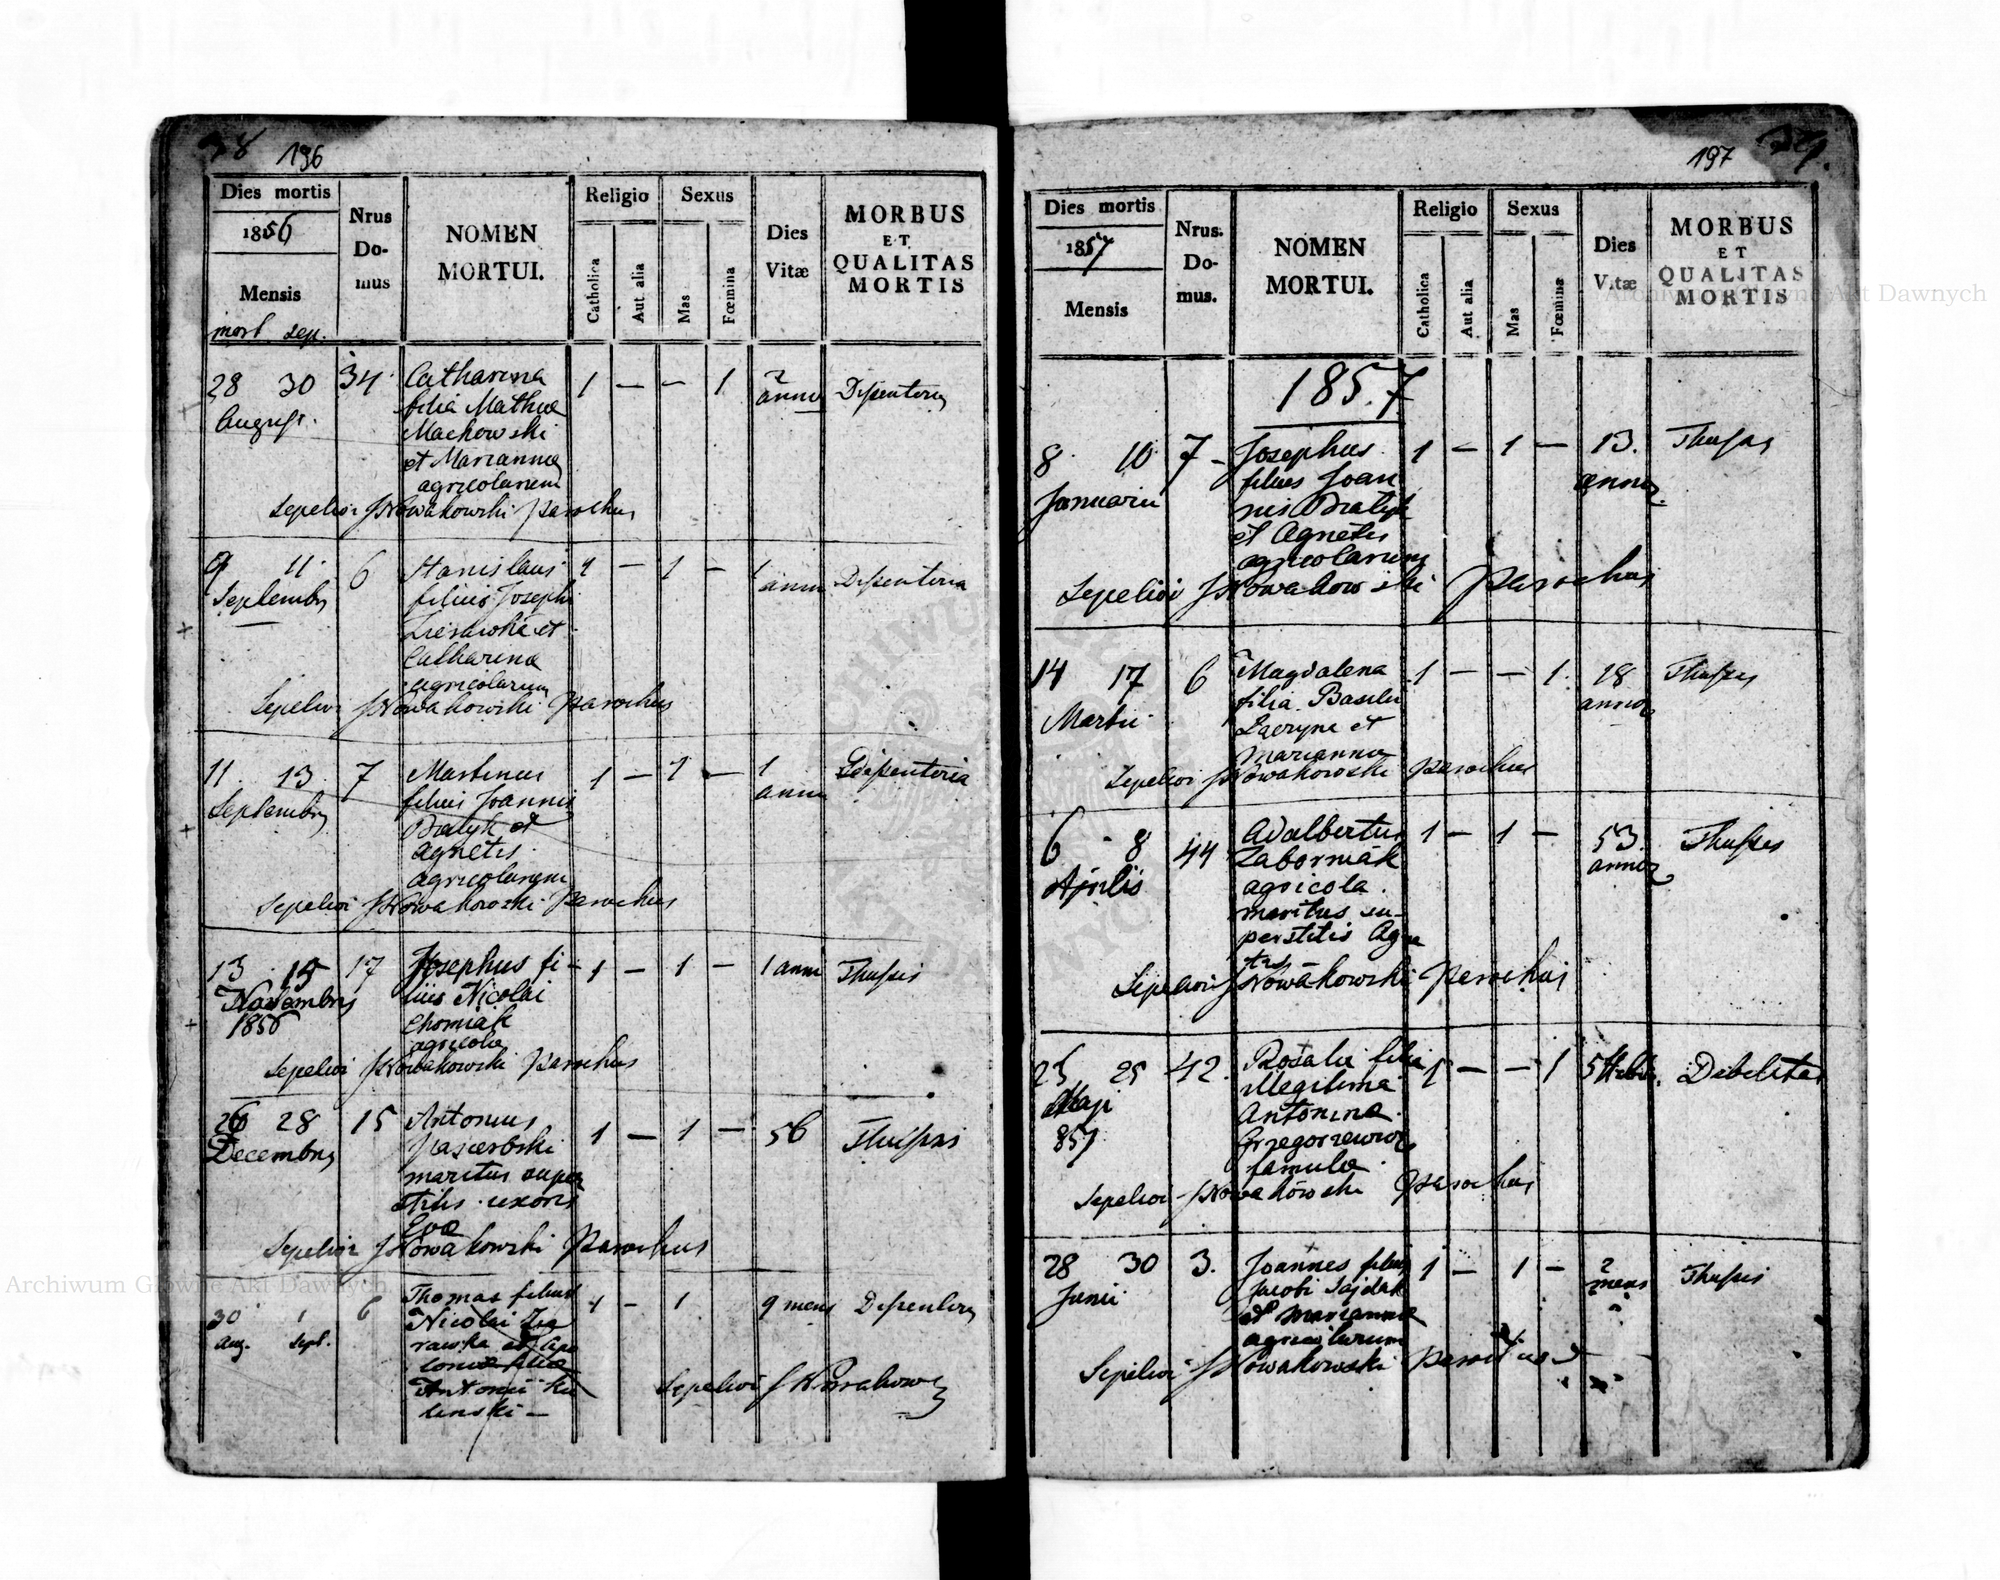 38 196
Dies mortis
1856
Mensis
mort. sep.
Nrus Domus
NOMEN MORTUI.
Religio
Catholica
Aut. alia
Sexus
Mas
Fœmina
Dies Vitæ
MORBUS
ET
QUALITAS
MORTIS
28 30 34 Catharina 1 — — 1 2 Disenteria
August. filia Mathiæ anno
Machowski
et Marianna
agricolarum
Sepelivi JNowakowski Parochus
9 11 6 Stanislaus 1 — 1 — 1 Disenteria
Septembris filius Josephi anni
et
Catharina
agricolarum
Sepelivi JNowakowski Parochus
11 13 7 Martinus 1 — 1 — 1 Disenteria
Septembris filius Joannis anni
Bratyk et
Agnetis
agricolarum
Sepelivi JNowakowski Parochus
13 15 17 Josephus fi- 1 — 1 — 1 anni Thussis
Novembris lius Nicolai
1856 Chomiak
agricolæ
Sepelivi JNowakowski Parochus
26 28 15 Antonius 1 — 1 — 56 Thussis
Decembris
maritus super
stitis uxoris
Eva
Sepelivi JNowakowski Parochus
30 1 6 Thomas filius 1 — 1 9 mens Disenteria
Aug. Sept. Nicolai
et Apo
loniæ filiæ
Antonii Ku
linski —
Sepelivi JNowakowski
197 39.
Dies mortis
1857
Mensis
Nrus. Domus.
NOMEN MORTUI.
Religio
Catholica
Aut alia
Sexus
Mas
Fœmina
Dies Vitæ
MORBUS
ET
QUALITAS
MORTIS
1857
8 10 7 Josephus 1 — 1 — 13. Thussis
Januarii filius Joan annor.
nis Bratyk
et Agnetis
agricolarum
Sepelivi JNowakowski Parochus
14 17 6 Magdalena 1 — — 1 18 Thussis
Martii filia Basilii annor
et
Marianna
Sepelivi JNowakowski Parochus
6 8 44 Adalbertus 1 — 1 — 53 Thussis
Aprilis Zaborniak annor
agricola
maritus su-
perstitis Agne
tis
Sepelivi JNowakowski Parochus
23 25 42. Rosalia filia 1 — — 1 5 Debilitas
Maji illegitima
857 Antonina
Grzegorzewicz
famula
Sepelivi JNowakowski Parochus
28 30 3. Joannes filius 1 — 1 — 2 Thussis
Junii Jacobi Sajdak mens
et Marianna
agricolarum
Sepelivi JNowakowski Parochus
Archiwum Główne Akt Dawnych
Archiwum Główne Akt Dawnych